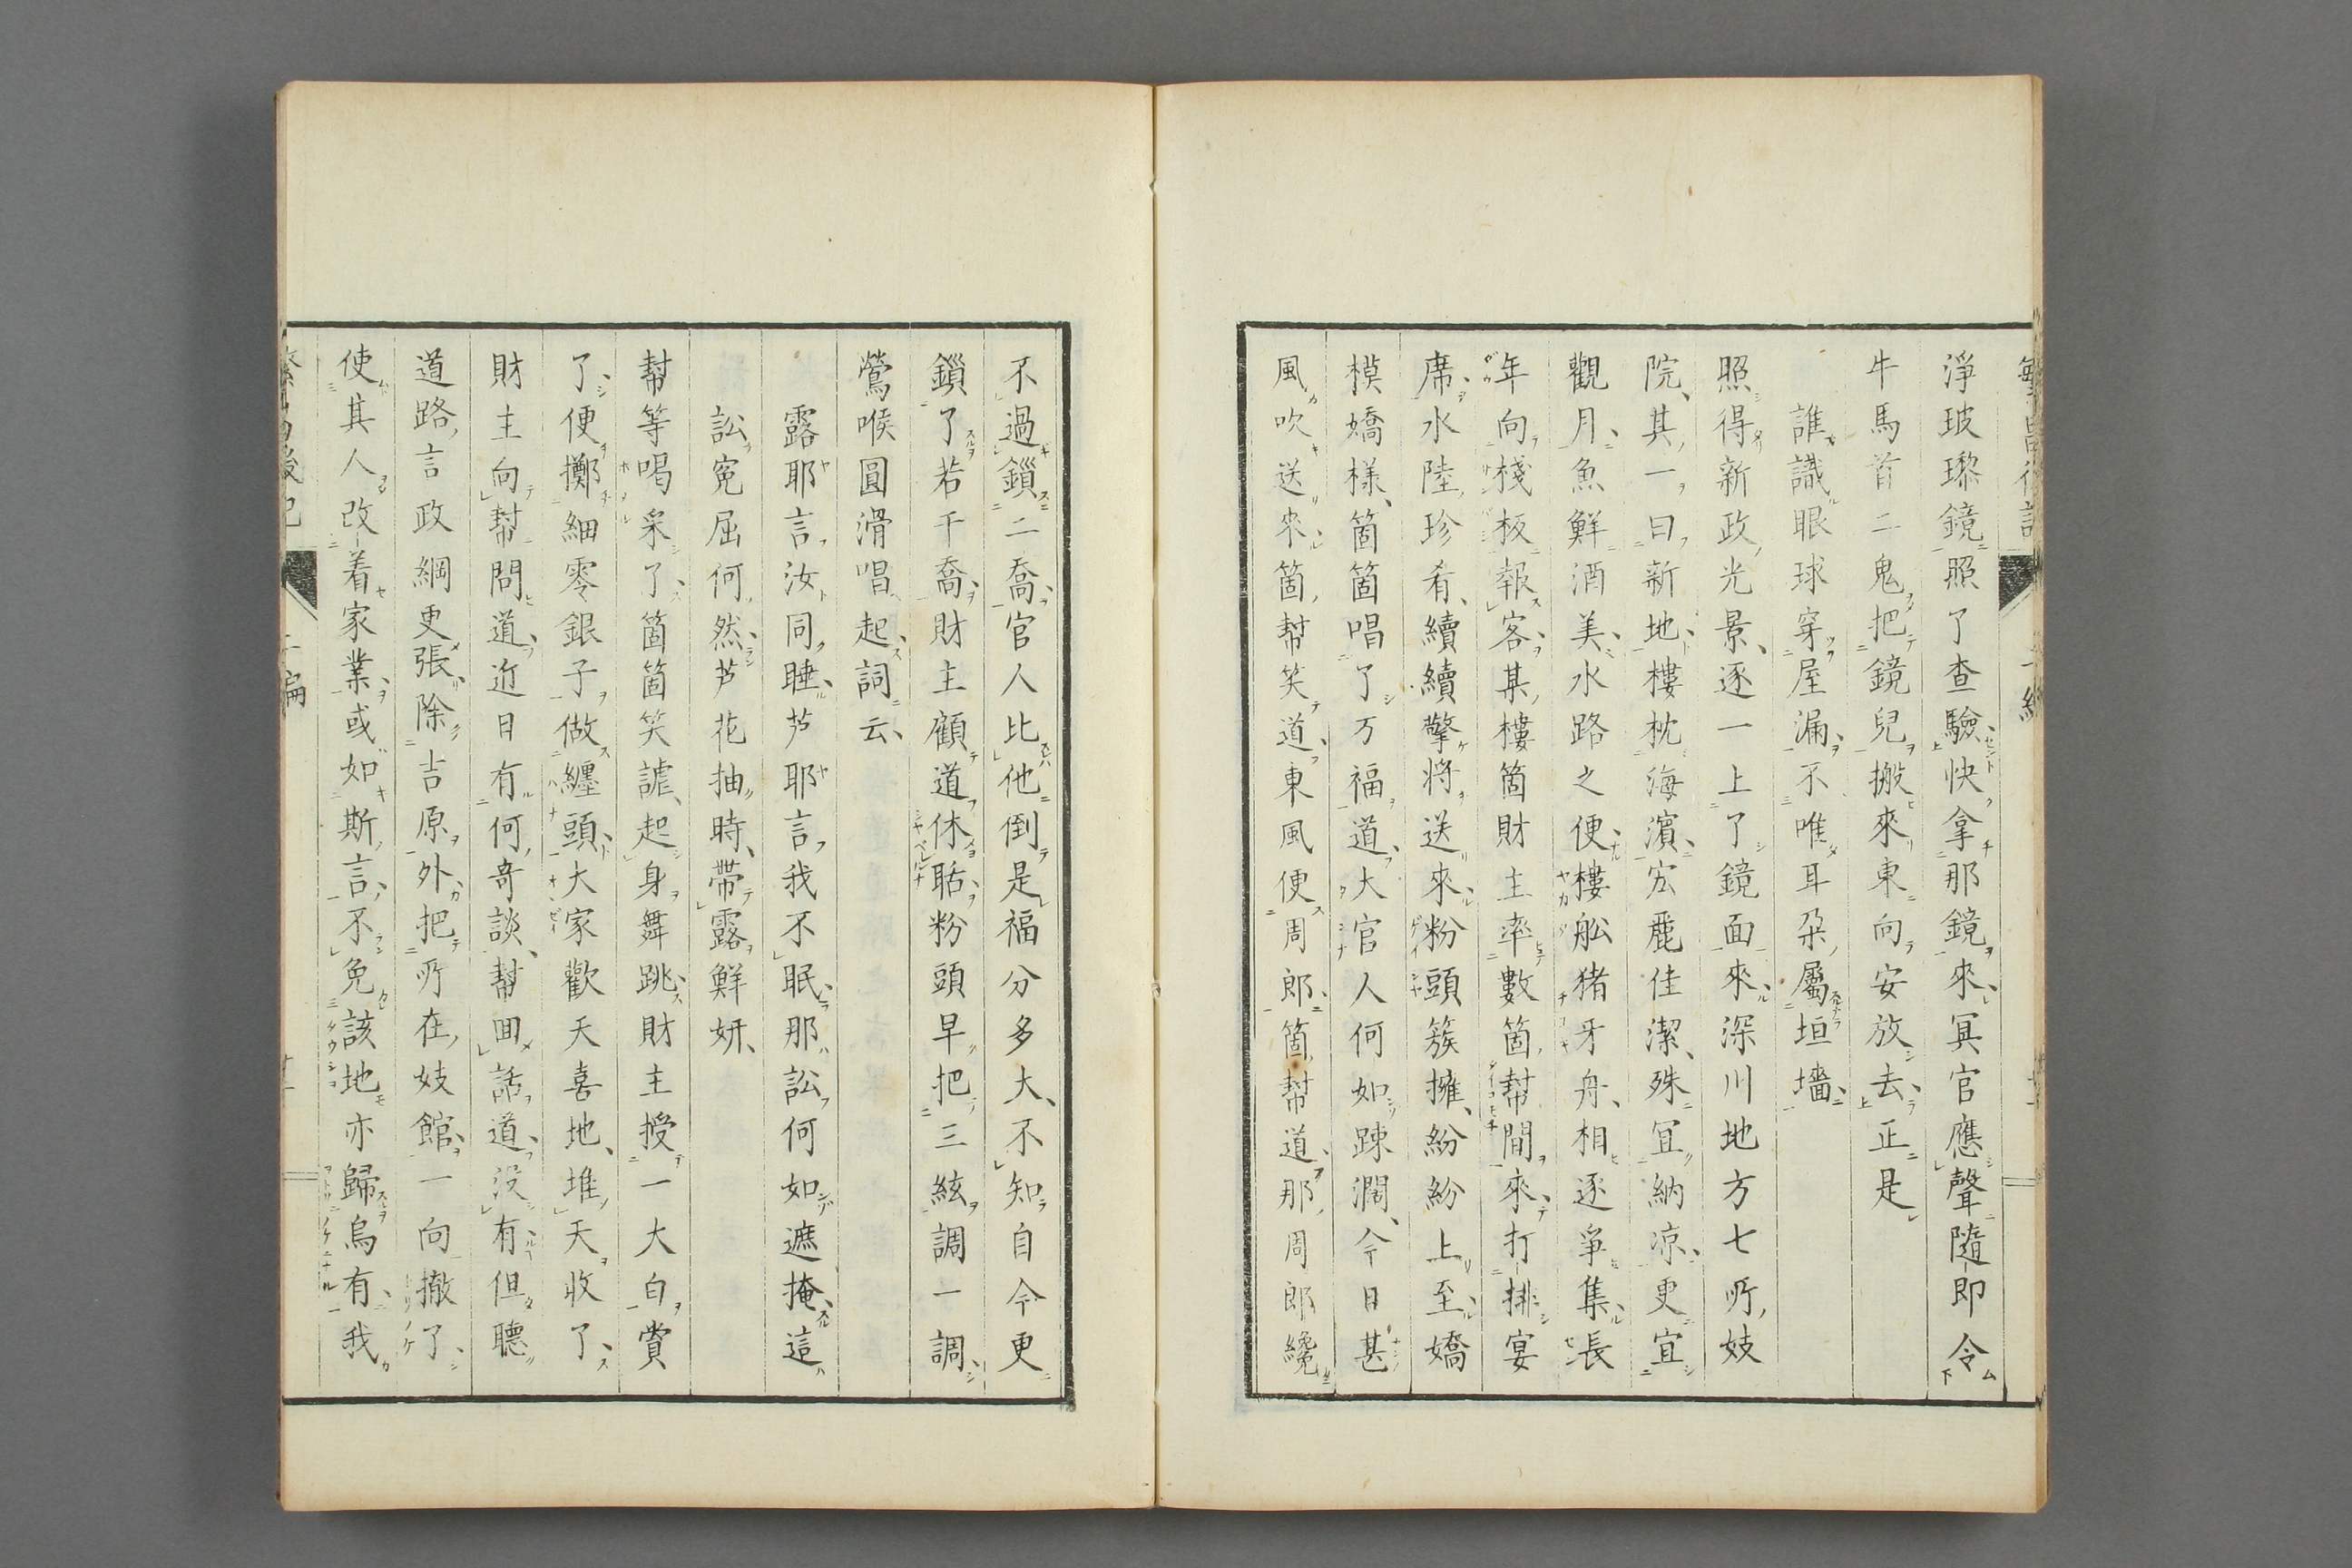 淨玻瓈鏡照了查驗快拿那鏡來冥官應聲隨即令
牛馬首二鬼把鏡兒搬來東向安放去正是
誰識眼球穿屋漏不唯耳朶屬垣墻
照得新政光景逐一上了鏡面來深川地方七所妓
院其一曰新地樓枕海濱宏麗佳潔殊宜納凉更宜
觀月魚鮮酒美水路之便樓舩猪牙舟相逐爭集長
年向棧板報客某樓箇財主率數箇幇間來打排宴
席水陸珍肴續續擎將送來粉頭簇擁紛紛上至嬌
模嬌樣箇箇唱了万福道大官人何如踈濶今日甚
風吹送來箇幇笑道東風便周郎箇幇道那周郎纔
不過鎖二喬官人比他倒是福分多大不知自今更
鎖了若干喬財主顧道休聒粉頭早把三絃調一調
鶯喉圓滑唱起詞云
露耶言汝同睡芦耶言我不眠那訟何如遮掩這
訟寃屈何然芦花抽時帶露鮮妍
幇等喝采了箇箇笑謔起身舞跳財主授一大白賞
了便擲細零銀子做纏頭大家歡天喜地堆天收了
財主向幇問道近日有何奇談幇囬話道没有但聽
道路言政綱更張除吉原外把所在妓館一向撤了
使其人改着家業或如斯言不免該地亦歸烏有我